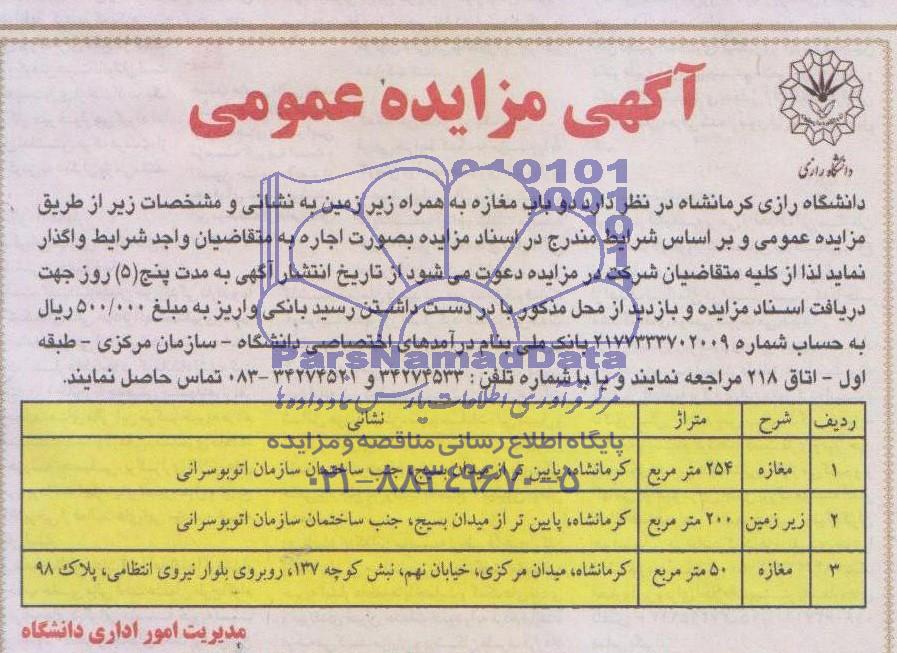 آگهی مزایده عمومی
دانشگاه رازی
010101
0001
دانشگاه رازی کرمانشاه در نظر دارد دو باب مغازه به همراه زیر زمین به نشانی و مشخصات زیر از طریق
مزایده عمومی و بر اساس شرایط مندرج در اسناد مزایده بصورت اجاره به متقاضیان واجد شرایط واگذار
نماید لذا از کلیه متقاضیان شرکت در مزایده دعوت می شود از تاریخ انتشار آگهی به مدت پنج(۵) روز جهت
دریافت اسناد مزایده و بازدید از محل مذکور با در دست داشتن رسید بانکی واریز به مبلغ ۵۰۰/۰۰۰ ریال
به حساب شماره ۲۱۷۷۳۳۳۷۰۲۰۰۹ بانک ملی بنام درآمدهای اختصاصی دانشگاه - سازمان مرکزی - طبقه
ParsNamadData
اول - اتاق ۲۱۸ مراجعه نمایند و یا با شماره تلفن : ۳۴۲۷۴۵۳۳ و ۳۴۲۷۴۵۲۱ -۰۸۳ تماس حاصل نمایند.
مرکز فرآوری اطلاعات پارس نماد داده ها
ردیف شرح متراژ نشانی
پایگاه اطلاع رسانی مناقصه و مزایده
۱ مغازه ۲۵۴ متر مربع کرمانشاه، پایین تر از میدان بسیج، جنب ساختمان سازمان اتوبوسرانی
۰۲۱-۸۸۳۴۹۶۷۰-۵
۲ زیر زمین ۲۰۰ متر مربع کرمانشاه، پایین تر از میدان بسیج، جنب ساختمان سازمان اتوبوسرانی
۳ مغازه ۵۰ متر مربع کرمانشاه، میدان مرکزی، خیابان نهم، نبش کوچه ۱۳۷، روبروی بلوار نیروی انتظامی، پلاک ۹۸
مدیریت امور اداری دانشگاه